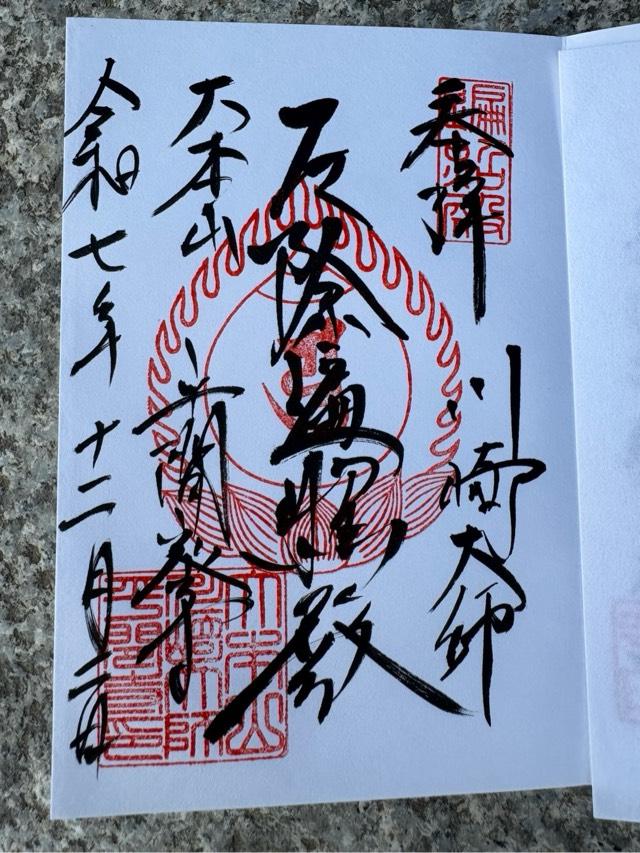 奉拝　川崎大師
厄除遍照殿
大本山　平間寺
令和七年十二月二日
大本山
川崎大師
平間寺印